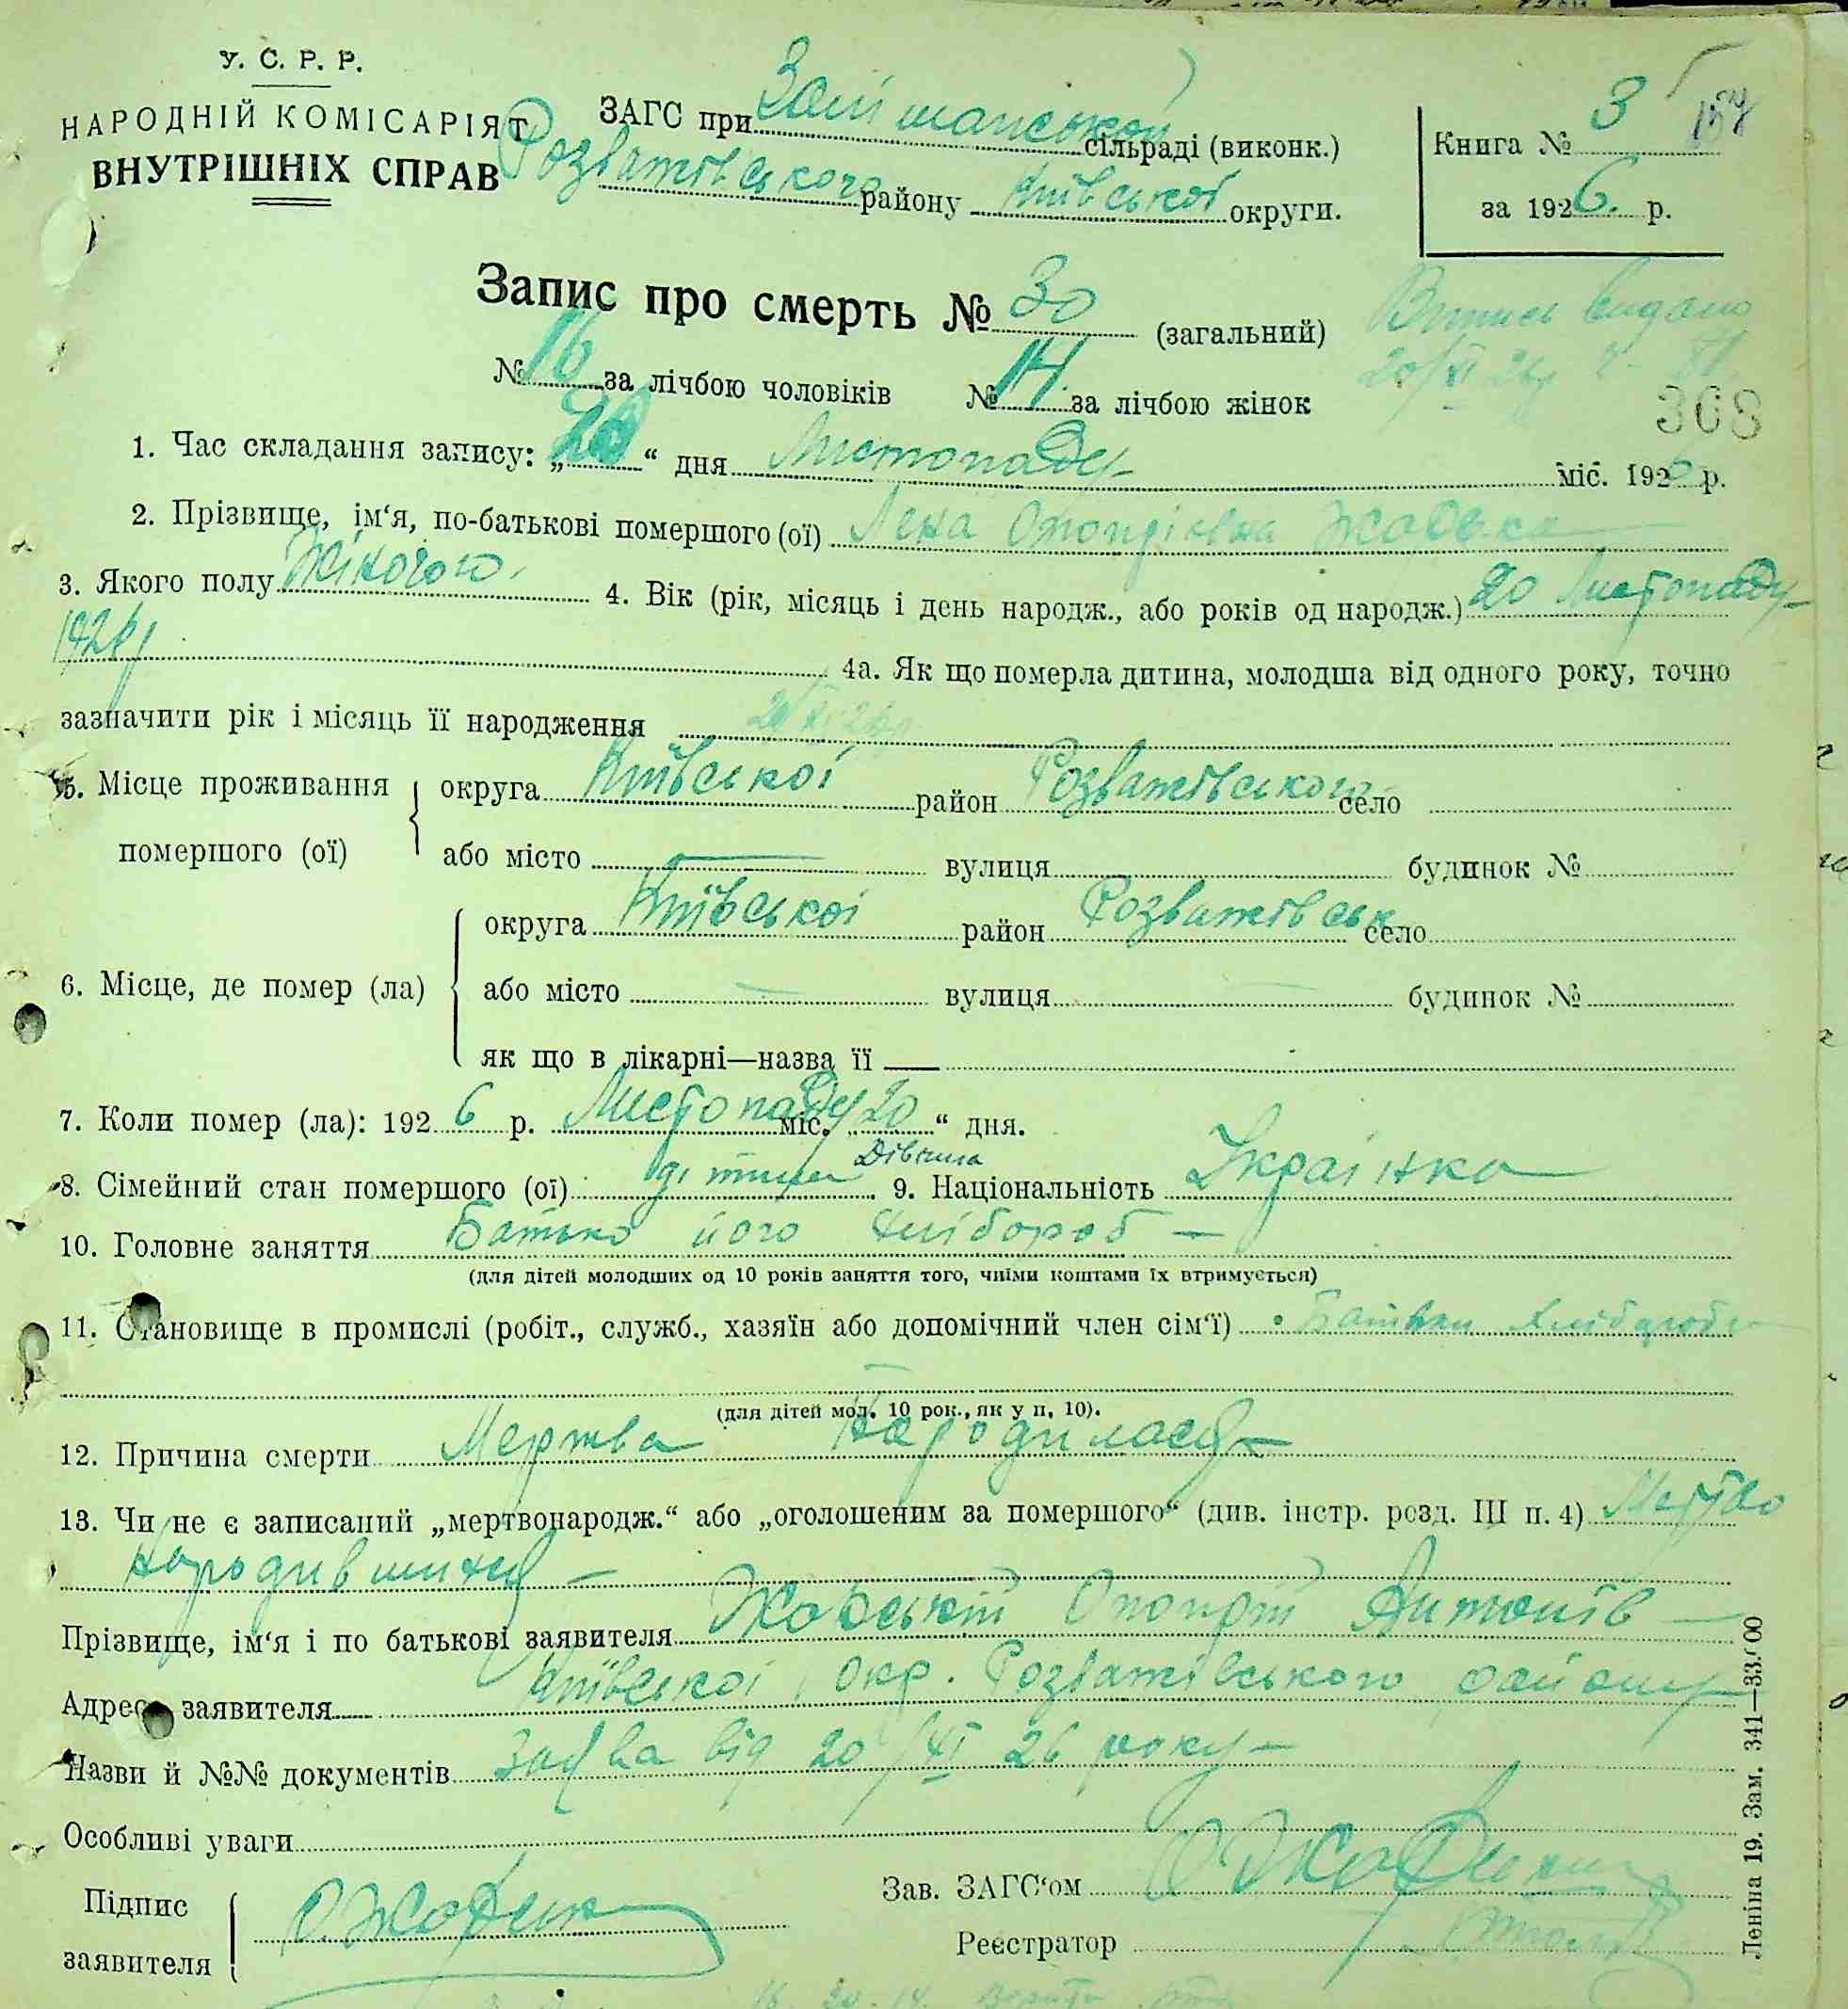 У. С. Р. Р.
НАРОДНІЙ КОМІСАРІЯТ
ВНУТРІШНІХ СПРАВ
ЗАГС при сільраді (виконк.)
Розважівського району Київської округи.
Книга № 3
157
за 1926. р.
Запис про смерть № 30 (загальний)
Витись видано
№ 16 за лічбою чоловіків № 14 за лічбою жінок
20/XI 26р
368
1. Час складання запису: „20“ дня Листопаду міс. 1926 р.
2. Прізвище, ім‘я, по-батькові помершого (ої) Лена
3. Якого полу Жіночого. 4. Вік (рік, місяць і день народж., або років од народж.) 20 Листопаду
1926р
4а. Як що померла дитина, молодша від одного року, точно
зазначити рік і місяць її народження 20/XI 26р
5. Місце проживання помершого (ої)
округа Київської район Розважівського село
або місто — вулиця будинок №
6. Місце, де помер (ла)
округа Київської район Розважівськ село
або місто — вулиця будинок №
як що в лікарні—назва її
7. Коли помер (ла): 1926 р. Листопаду міс. „20“ дня.
8. Сімейний стан помершого (ої) дітина Дівчина 9. Національність Українка
10. Головне заняття Батько його хлібороб —
(для дітей молодших од 10 років заняття того, чиїми коштами їх втримується)
11. Становище в промислі (робіт., служб., хазяїн або допомічний член сім‘ї)
(для дітей мол. 10 рок., як у п. 10).
12. Причина смерти Мертва народилася
13. Чи не є записаний „мертвонародж.“ або „оголошеним за помершого“ (див. інстр. розд. III п. 4) Мертво
народившися —
Прізвище, ім‘я і по батькові заявителя Антонів —
Адреса заявителя Київської окр. Розважівського району
Назви й №№ документів Заява від 20/XI 26 року —
Особливі уваги
Підпис заявителя
Зав. ЗАГС‘ом
Реєстратор
Леніна 19. Зам. 341—33.000